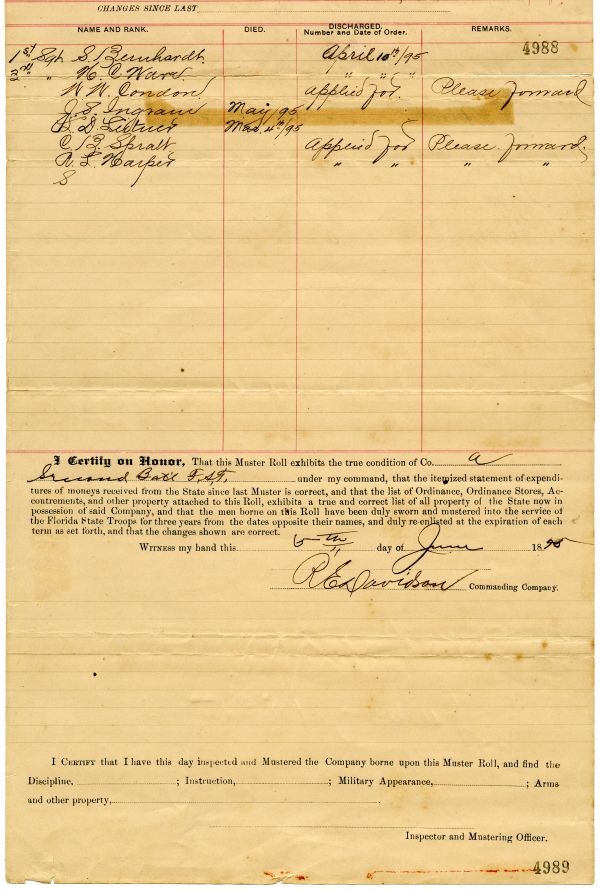 CHANGES SINCE LAST
NAME AND RANK. DIED. DISCHARGED. Number and Date of Order. REMARKS.
4988
1st Sgt. S. Bernhardt April 10th/95
2nd " H. C. Ward " " "
W W. Condon applied for. Please forward
J. S. Ingram May/95
L. D. May 4th/95
C. B. Spratt Applied for Please forward.
R. L. Harper " " " "
S
I Certify on Honor, That this Muster Roll exhibits the true condition of Co. A
Second Bat'l F.S.T. under my command, that the itemized statement of expendi-
tures of moneys received from the State since last Muster is correct, and that the list of Ordinance, Ordinance Stores, Ac-
coutrements, and other property attached to this Roll, exhibits a true and correct list of all property of the State now in
possession of said Company, and that the men borne on this Roll have been duly sworn and mustered into the service of
the Florida State Troops for three years from the dates opposite their names, and duly re-enlisted at the expiration of each
term as set forth, and that the changes shown are correct.
WITNESS my hand this 5th day of June 1895
R E Davidson Commanding Company.
I CERTIFY that I have this day inspected and Mustered the Company borne upon this Muster Roll, and find the
Discipline, ; Instruction, ; Military Appearance, ; Arms
and other property, .
Inspector and Mustering Officer.
4989